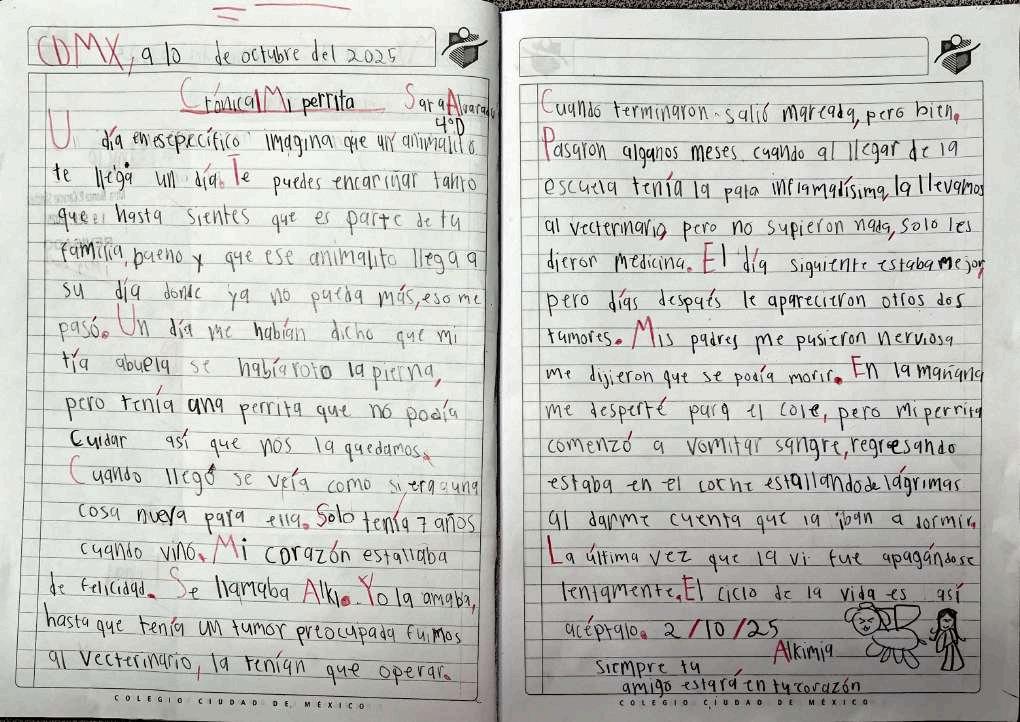 CDMX, a 10 de octubre del 2025
Crónica Mi perrita Sara Alvarado
4°D
Un día en esepecífico imagina que un animalito
te llega un día. Te puedes encariñar tanto
que hasta sientes que es parte de tu
familia, bueno y que ese animalito llega a
su día donde ya no pueda más, eso me
pasó. Un día me habían dicho que mi
tía abuela se había roto la pierna,
pero tenía una perrita que no podía
cuidar así que nos la quedamos.
Cuando llegó se veía como si era una
cosa nueva para ella. Solo tenía 7 años
cuando vino. Mi corazón estallaba
de felicidad. Se llamaba Alki. Yo la amaba,
hasta que tenía un tumor preocupada fuimos
al vecterinario, la tenían que operar.
COLEGIO CIUDAD DE MÉXICO
Cuando terminaron salió mareada, pero bien.
Pasaron algunos meses cuando al llegar de la
escuela tenía la pata inflamadísima, la llevamos
al vecterinario, pero no supieron nada, solo les
dieron medicina. El día siguiente estaba mejor,
pero días después le aparecieron otros dos
tumores. Mis padres me pusieron nerviosa
me dijieron que se podía morir. En la mañana
me desperté para el cole, pero mi perrita
comenzó a vomitar sangre, regresando
estaba en el coche estallando de lágrimas
al darme cuenta que la iban a dormir.
La última vez que la vi fue apagándose
lentamente. El ciclo de la vida es así
acéptalo. 2/10/25
Alkimia
Siempre tu
amigo estará en tu corazón
COLEGIO CIUDAD DE MÉXICO